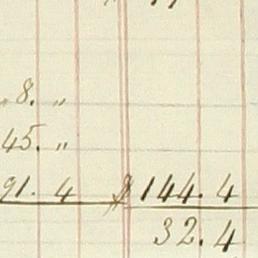 8. "
45. "
91. 4 $ 144. 4
32. 4